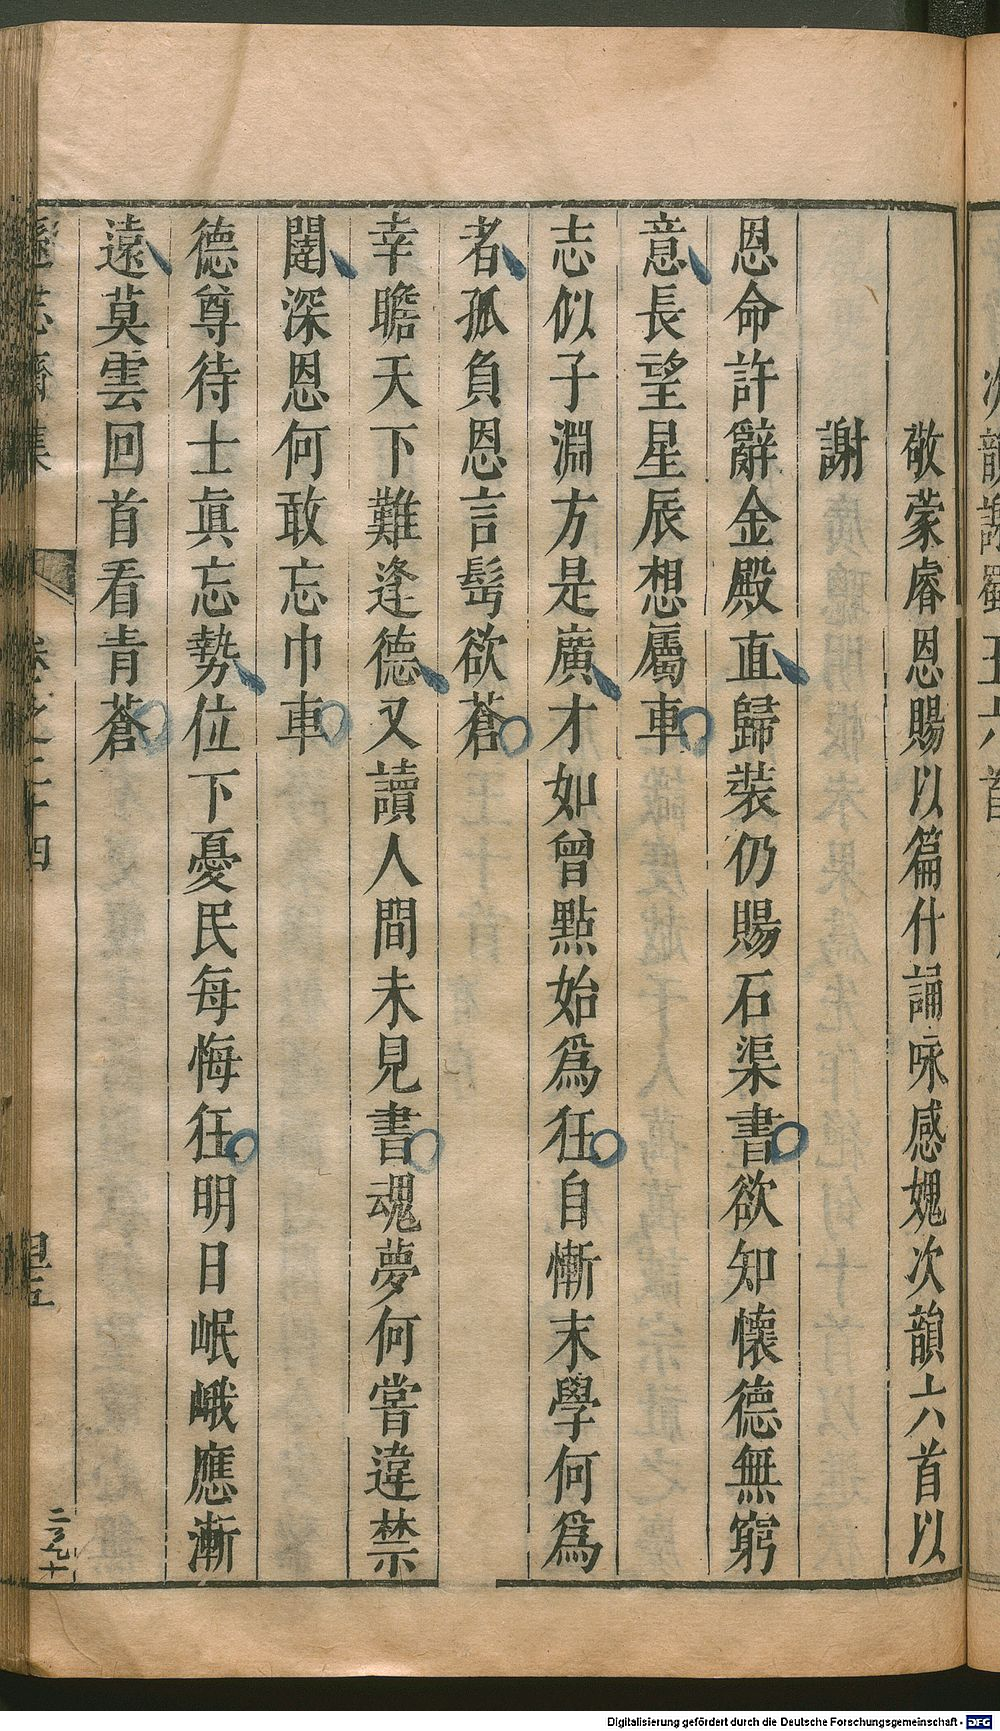 敬蒙睿恩賜以篇什誦咏感媿次韻六首以
謝
恩命許辭金殿直歸裝仍賜石渠書欲知懷德無窮
意長望星辰想屬車
志似子淵方是廣才如曾點始爲狂自慚末學何爲
者孤負恩言髩欲蒼
幸瞻天下難逢德又讀人間未見書魂夢何嘗違禁
闥深恩何敢忘巾車
德尊待士眞忘勢位下憂民每悔狂明日岷峨應漸
遠莫雲回首看青蒼
遜志齋集
卷之二十四
二百九十
Digitalisierung gefördert durch die Deutsche Forschungsgemeinschaft - DFG